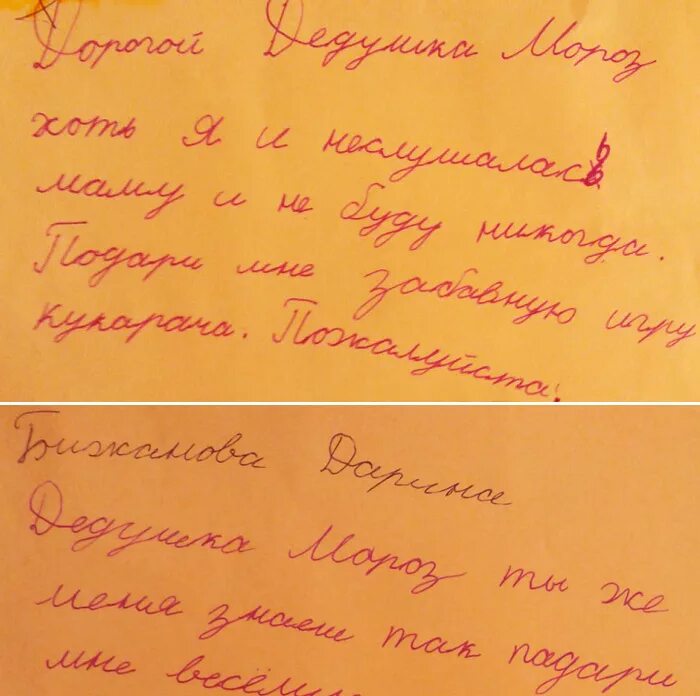 Дорогой Дедушка Мороз
хоть я и неслушалась
маму и не буду никогда.
Подари мне забавную игру
кукарача. Пожалуйста!
Бижанова Дарина
Дедушка Мороз ты же
меня знаеш так падари
мне